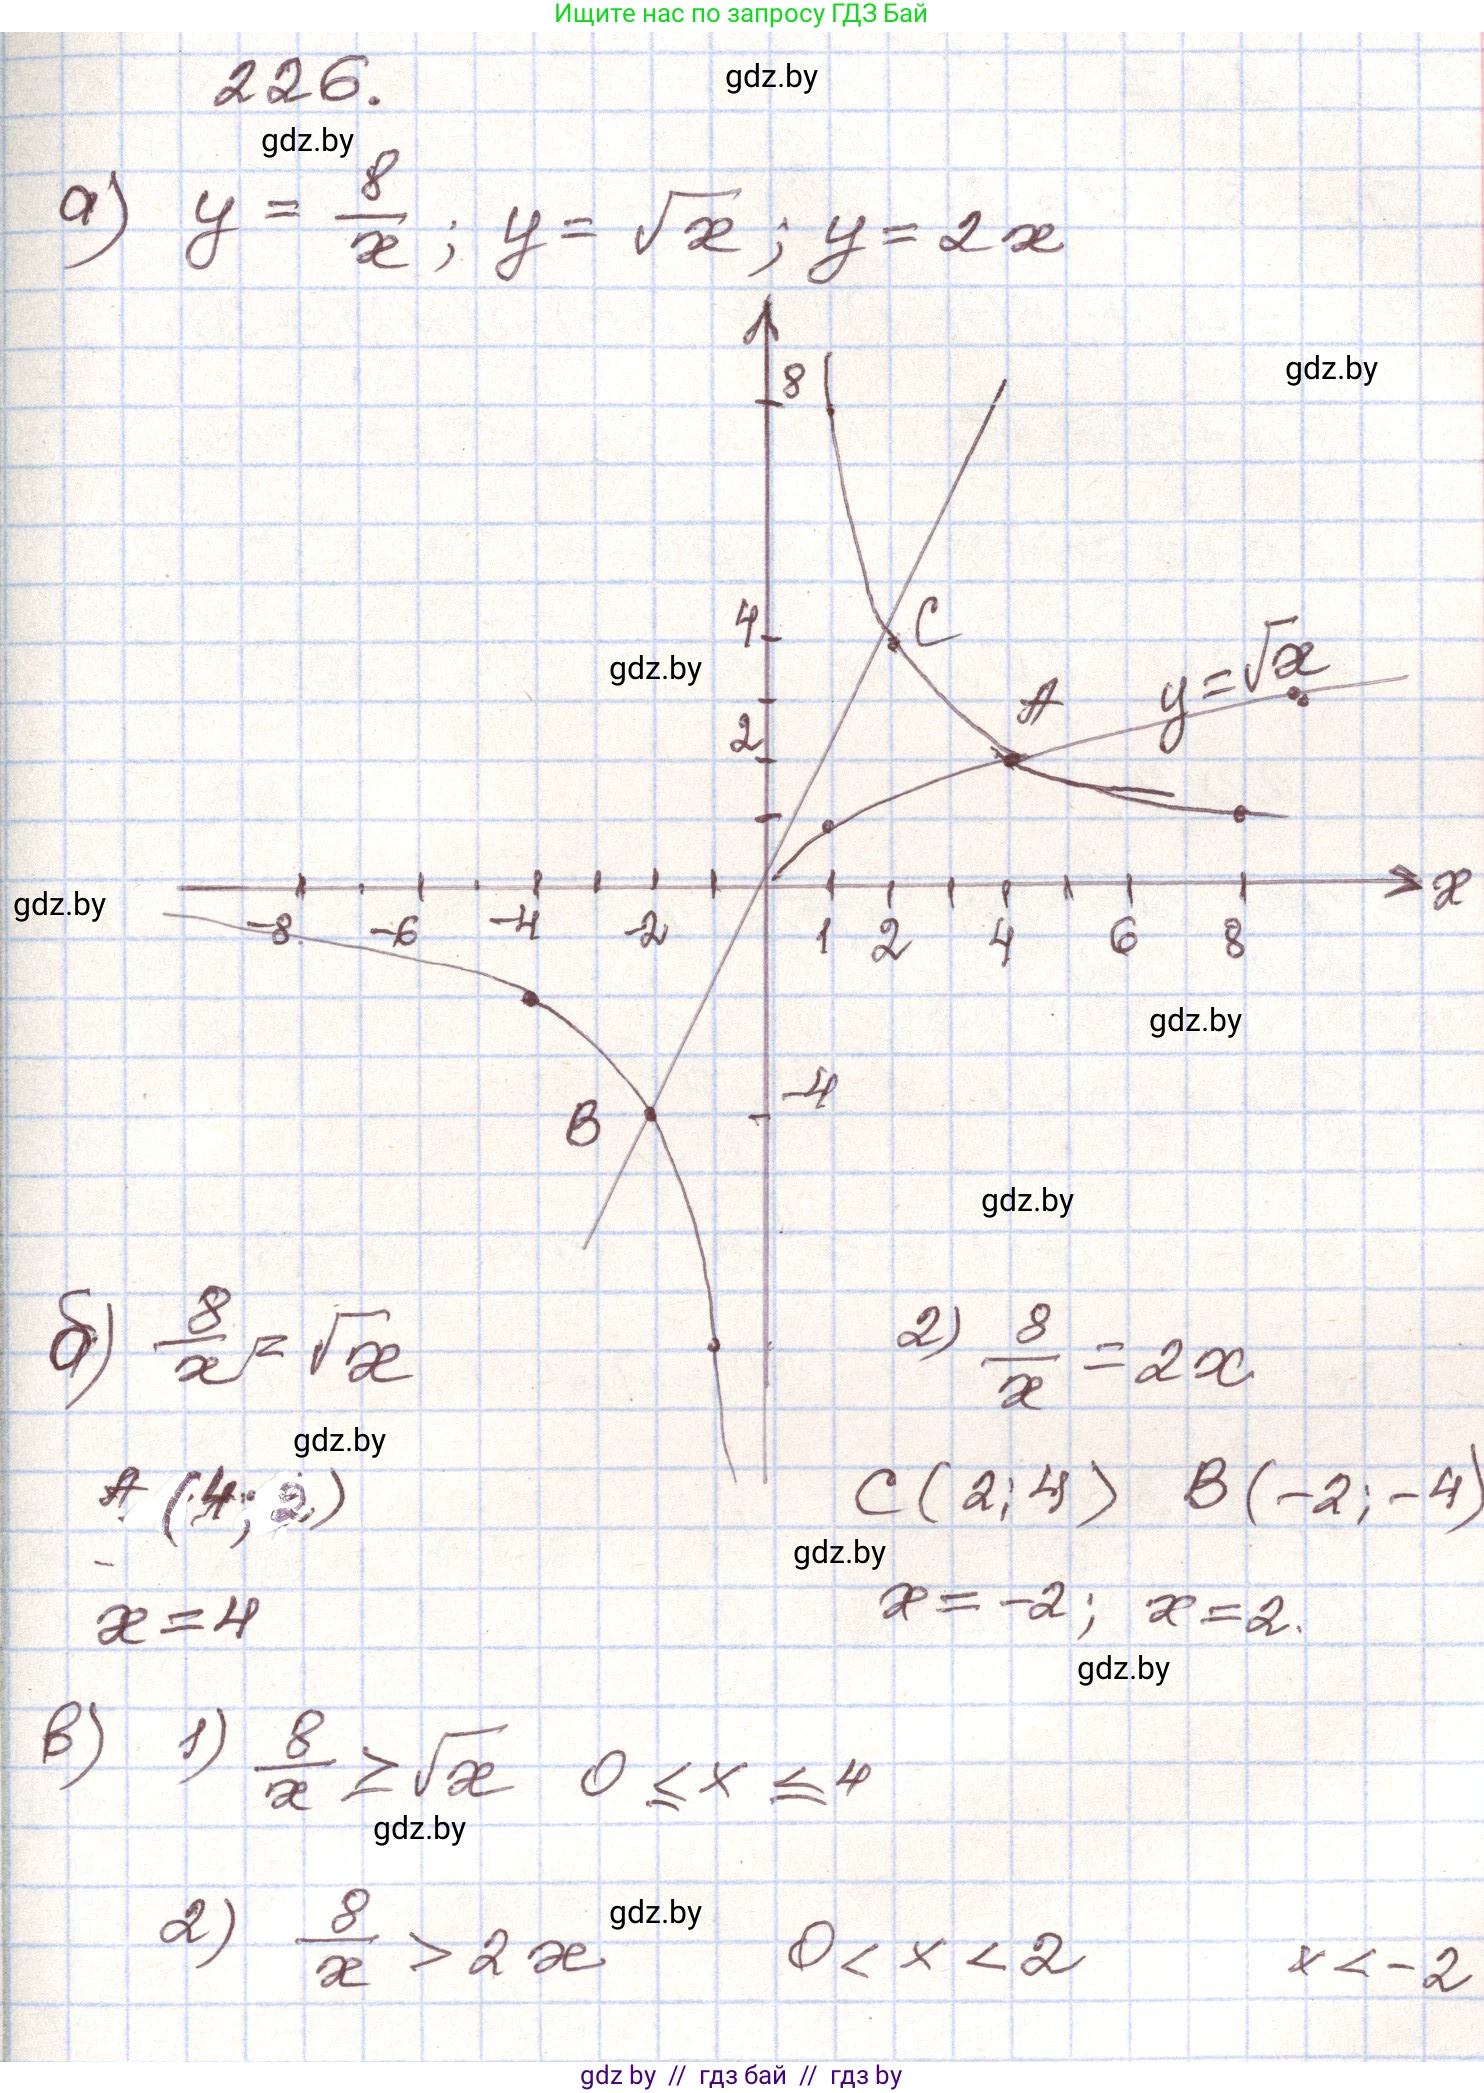 Ищите нас по запросу ГДЗ Бай
226.
gdz.by
gdz.by
а) y = 8/x ; y = √x ; y = 2x
8
gdz.by
4
C
gdz.by
y = √x
A
2
gdz.by
x
-8 -6 -4 -2 1 2 4 6 8
gdz.by
-4
B
gdz.by
б) 8/x = √x 2) 8/x = 2x
gdz.by
A (4; 2) C (2; 4) B (-2; -4)
gdz.by
x = 4 x = -2; x = 2.
gdz.by
в) 1) 8/x ≥ √x 0 ≤ x ≤ 4
gdz.by
2) 8/x > 2x 0 < x < 2 x < -2
gdz.by
gdz.by // гдз бай // гдз by